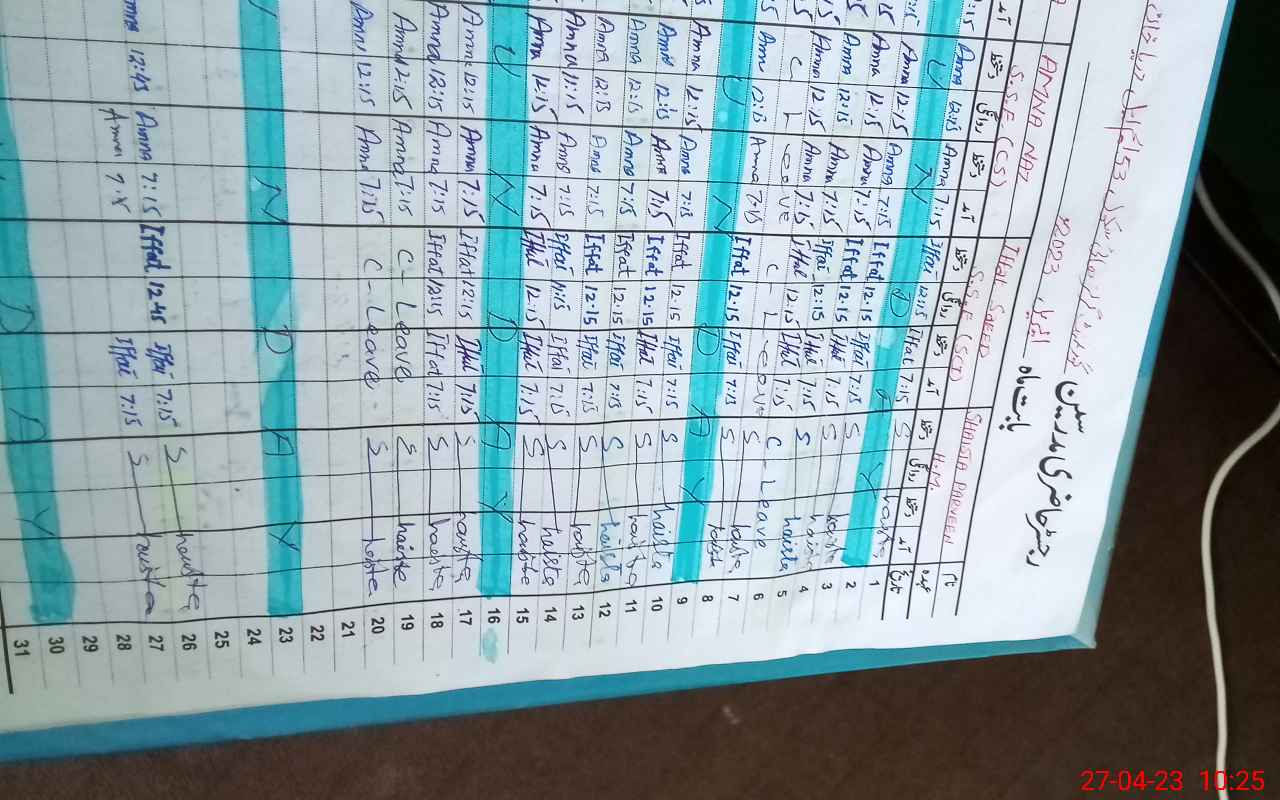 رجسٹر حاضری مدرسین
بابت ماہ اپریل 2023
AMNA NAZ IFFat SAEED SHAISTA PARVEEN نام
S.S.E (CS) S.S.E (SCI) H.M. عہدہ
دستخط روانگی دستخط آمد دستخط روانگی دستخط آمد دستخط روانگی دستخط آمد تاریخ
Amna 12:15 Amna 7:15 Iffat 12:15 Iffat 7:15 Shaista 1
S U N D A Y 2
Amna 12:15 Amna 7:15 Iffat 12:15 Iffat 7:15 Shaista 3
Amna 12:15 Amna 7:15 Iffat 12:15 Iffat 7:15 Shaista 4
Amna 12:15 Amna 7:15 Iffat 12:15 Iffat 7:15 Shaista 5
C - Leave C - Leave C - Leave 6
Amna 12:15 Amna 7:15 Iffat 12:15 Iffat 7:15 Shaista 7
Shaista 8
U N D A Y 9
Amna 12:15 Amna 7:15 Iffat 12:15 Iffat 7:15 Shaista 10
Amna 12:15 Amna 7:15 Iffat 12:15 Iffat 7:15 Shaista 11
Amna 12:15 Amna 7:15 Iffat 12:15 Iffat 7:15 Shaista 12
Amna 12:15 Amna 7:15 Iffat 12:15 Iffat 7:15 Shaista 13
Amna 11:15 Amna 7:15 Iffat 11:15 Iffat 7:15 Shaista 14
Amna 12:15 Amna 7:15 Iffat 12:15 Iffat 7:15 Shaista 15
U N D A Y 16
Amna 12:15 Amna 7:15 Iffat 12:15 Iffat 7:15 Shaista 17
Amna 12:15 Amna 7:15 Iffat 12:15 Iffat 7:15 Shaista 18
Amna 12:15 Amna 7:15 C - Leave Shaista 19
Amna 12:15 Amna 7:15 C - Leave Shaista 20
21
22
U N D A Y 23
24
25
12:45 Amna 7:15 Iffat 12:45 Iffat 7:15 Shaista 26
Amna Iffat 7:15 Shaista 27
28
29
D A Y 30
31
27-04-23 10:25